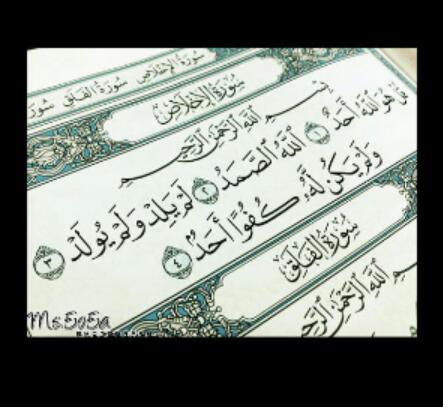 سورة الإخلاص سورة الفلق سورة
سُورَةُ الإِخْلَاصِ
بِسْمِ ٱللَّهِ ٱلرَّحْمَٰنِ ٱلرَّحِيمِ
قُلْ هُوَ ٱللَّهُ أَحَدٌ ١ ٱللَّهُ ٱلصَّمَدُ ٢ لَمْ يَلِدْ وَلَمْ يُولَدْ ٣
وَلَمْ يَكُن لَّهُۥ كُفُوًا أَحَدٌۢ ٤
سُورَةُ الْفَلَقِ
بِسْمِ ٱللَّهِ ٱلرَّحْمَٰنِ ٱلرَّحِيمِ
Ms.5o5a